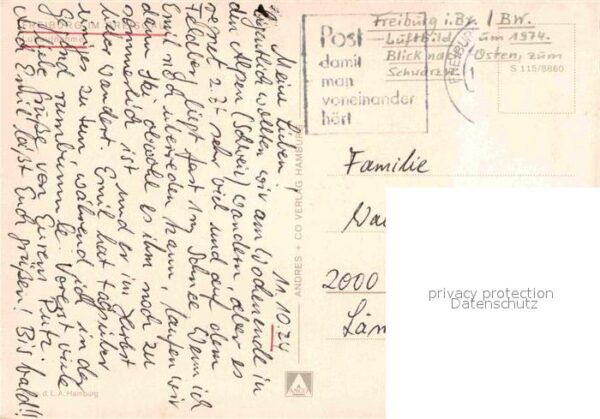 FREIBURG IM BREISGAU
11.10.74
Meine Lieben!
Eigentlich wollten wir am Wochenende in
den Alpen (Schweiz) wandern, aber es
regnet z.Zt sehr viel und auf dem
Feldberg liegt fast 1m Schnee. Wenn ich
Emil noch überreden kann, laufen wir
dann Ski obwohl es ihm noch zu
sommerlich ist und er im Herbst
lieber wandert. Emil hat tagsüber
einiges zu tun, während ich in der
Gegend rumbummle. Vorerst viele
Grüße von Eurem
und Emil läßt Euch grüßen! Bis bald!!
d. L.A. Hamburg
ANDRES + CO VERLAG HAMBURG
Post
damit
man
voneinander
hört
Freiburg i.Br. / BW.
Luftbild um 1974.
Blick nach Osten, zum
Schwarzw
S 115/8860
Familie
2000
privacy protection
Datenschutz